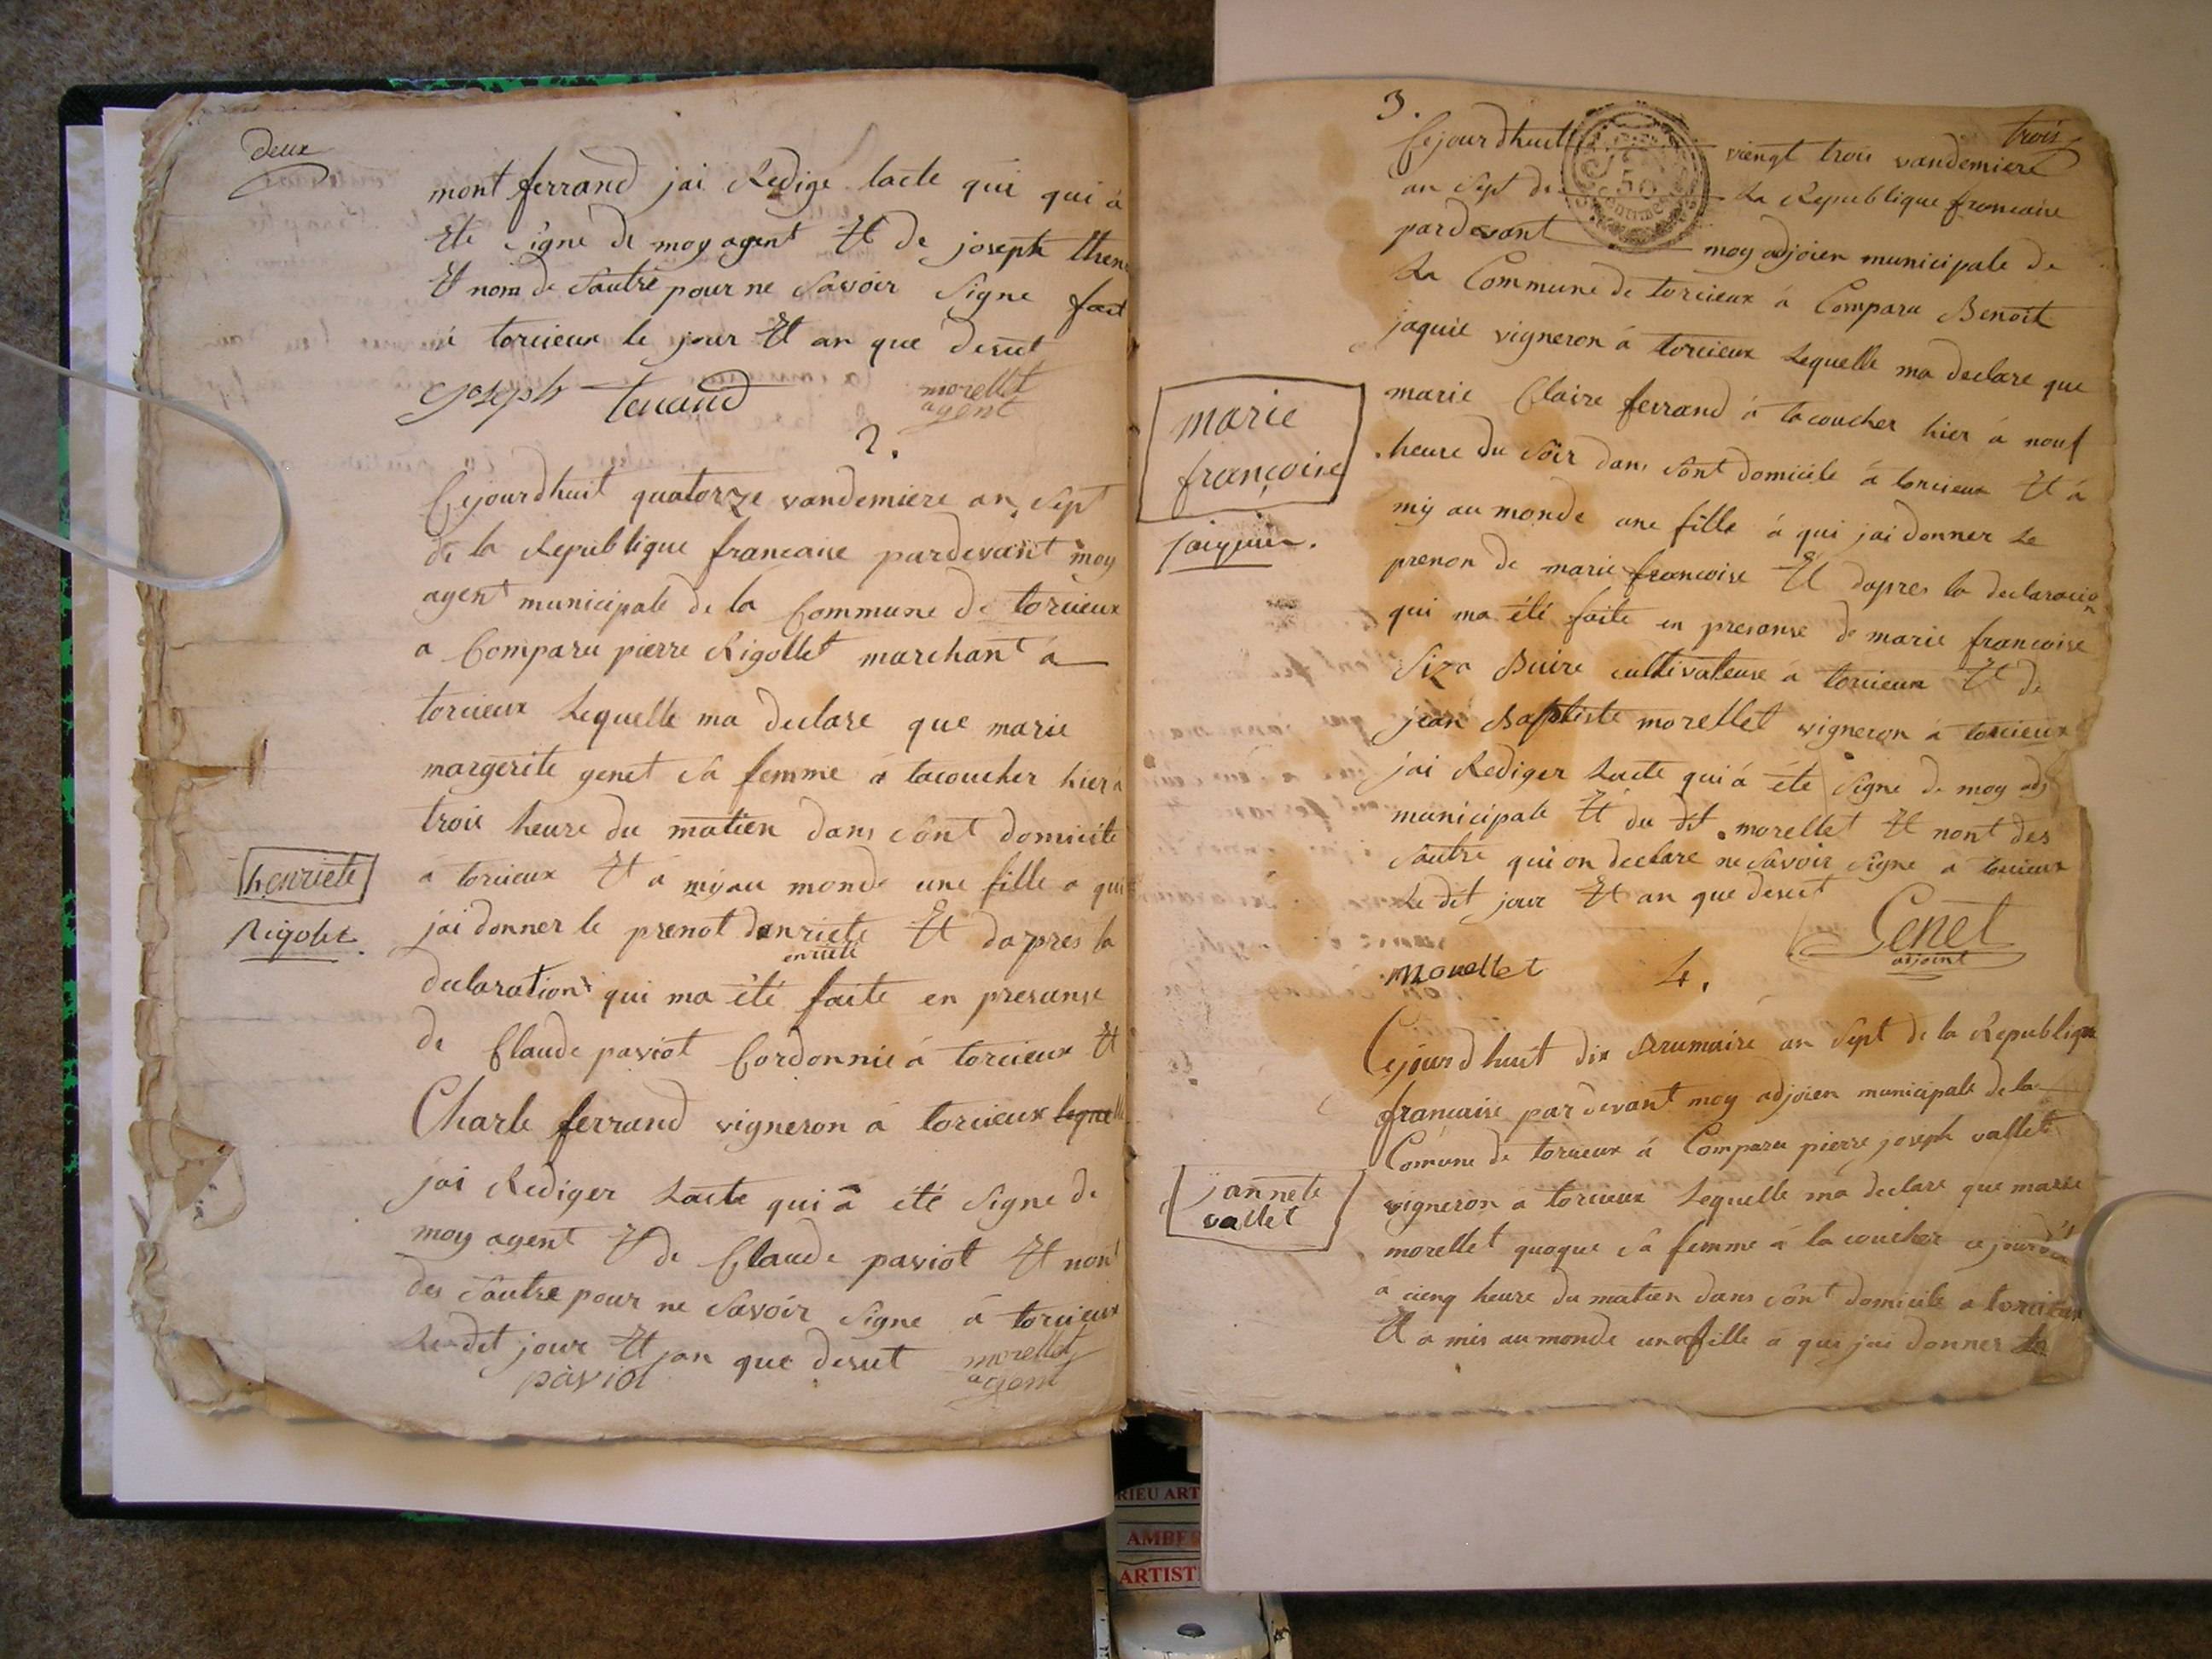 deux
mont ferrand jai Redigé lacte qui qui à
Eté Signé de moy agent Et de joseph
Et nom de Sautre pour ne Savoir Signe fait
à torcieux le jour Et an que desut
joseph tenand morellet
agent
2.
Cejourdhuit quatorze vandemiere an Sept
de la Republique francaise pardevant moy
agent municipale de la Commune de torcieux
a Comparu pierre Rigollet marchant à
torcieux Lequelle ma declare que marie
margerite genet Sa femme à lacoucher hier à
trois heure du matien dans Sont domicile
henriete
à torcieux Et à mis au monde une fille a qui
Rigolet
jai donner le prenot denriete Et dapres la
enriete
declarationt qui ma été faite en presanse
de Claude paviot Cordonnié à torcieux Et
Charle ferrand vigneron à torcieux lequelle
jai Rediger Lacte qui à été Signe de
moy agent Et de Claude paviot Et nont
des Sautre pour ne Savoir Signe à torcieux
Le dit jour Et an que desut morellet
paviot agent
3.
trois
Cejourdhuit viengt trois vandemiere
an Sept de La Republique francaise
50
pardevant moy adjoien municipale de
La Commune de torcieux à Comparu Benoit
jaquie vigneron à torcieux Lequelle ma declare que
marie Claire ferrand à lacoucher hier à nouf
marie
francoise
heure du Soir dans Sont domicile à torcieux Et à
mis au monde une fille à qui jai donner Le
prenon de marie francoise Et dapres la declaracion
qui ma été faite en presanse de marie francoise
Buire cultivateuse à torcieux Et de
jean Baptiste morellet vigneron à torcieux
jai Rediger Lacte qui à été Signe de moy adj
municipale Et du dit morellet Et nont des
Sautre qui on declare ne Savoir Signe a torcieux
Le dit jour Et an que desut
Genet
adjoint
Morellet
4.
Cejourdhuit dix Brumaire an Sept de la Republique
francaise pardevant moy adjoien municipale de la
Comune de torcieux à Comparu pierre joseph vallet
jannete
vallet
vigneron a torcieux Lequelle ma declare que marie
morellet quoque Sa femme à lacoucher ce jourdui
a cienq heure du matien dans Sont domicile a torcieux
Et a mis au monde une fille a qui jai donner le